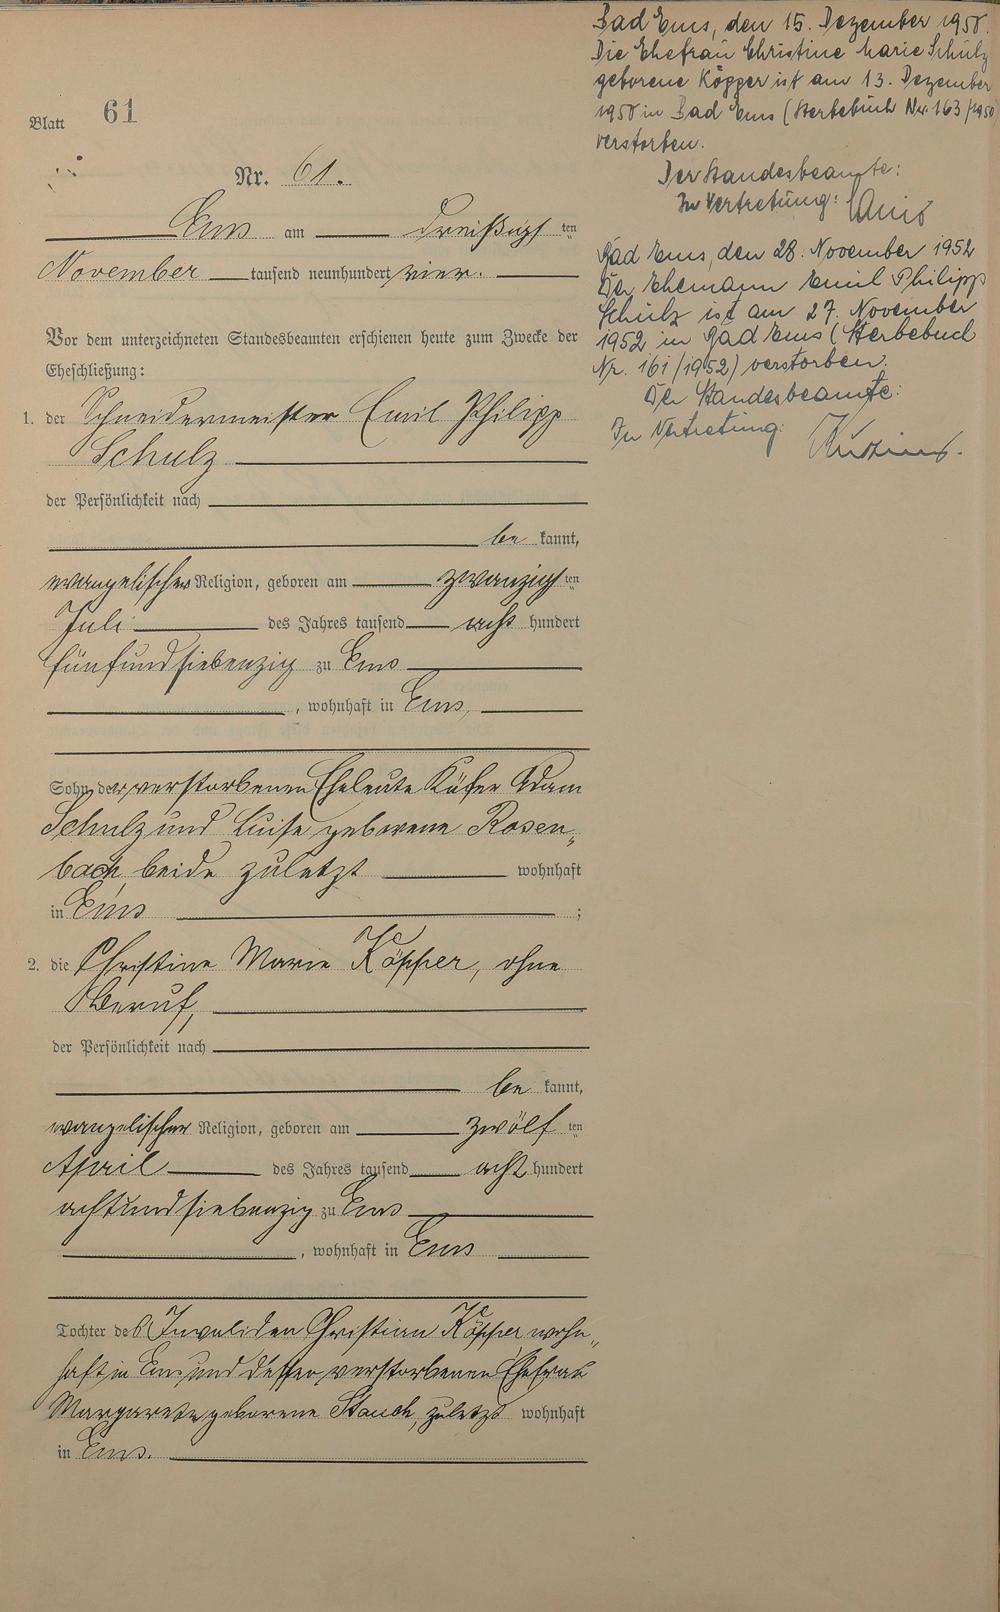 Blatt 61
Nr. 61.
Ems am dreißigsten
November tausend neunhundert vier.
Vor dem unterzeichneten Standesbeamten erschienen heute zum Zwecke der
Eheschließung:
1. der Schneidermeister Emil Philipp
Schulz
der Persönlichkeit nach
be kannt,
evangelischer Religion, geboren am zwanzigsten
Juli des Jahres tausend acht hundert
fünfundsiebenzig zu Ems
, wohnhaft in Ems,
Sohn der verstorbenen Eheleute Küfer Adam
Schulz und Luise geborene Rosen„
bach, beide zuletzt wohnhaft
in Ems ;
2. die Christine Marie Köpper, ohne
Beruf,
der Persönlichkeit nach
be kannt,
evangelischer Religion, geboren am zwölf ten
April des Jahres tausend acht hundert
achtundsiebenzig zu Ems
, wohnhaft in Ems
Tochter des Invaliden Christian Köpper, wohn„
haft in Ems und dessen verstorbenen Ehefrau
Margarete geborene Stauch, zuletzt wohnhaft
in Ems.
Bad Ems, den 15. Dezember 1950.
Die Ehefrau Christine Marie Schulz
geborene Köpper ist am 13. Dezember
1950 in Bad Ems (Sterbebuch Nr. 163/1950)
verstorben.
Der Standesbeamte:
In Vertretung:
Bad Ems, den 28. November 1952
Der Ehemann Emil Philipp
Schulz ist am 27. November
1952 in Bad Ems (Sterbebuch
Nr. 161/1952) verstorben.
Der Standesbeamte:
In Vertretung: